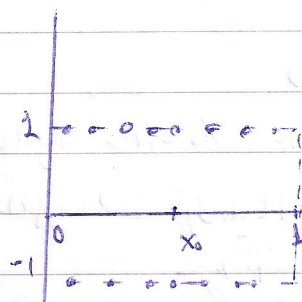 1
0
x₀
1
-1